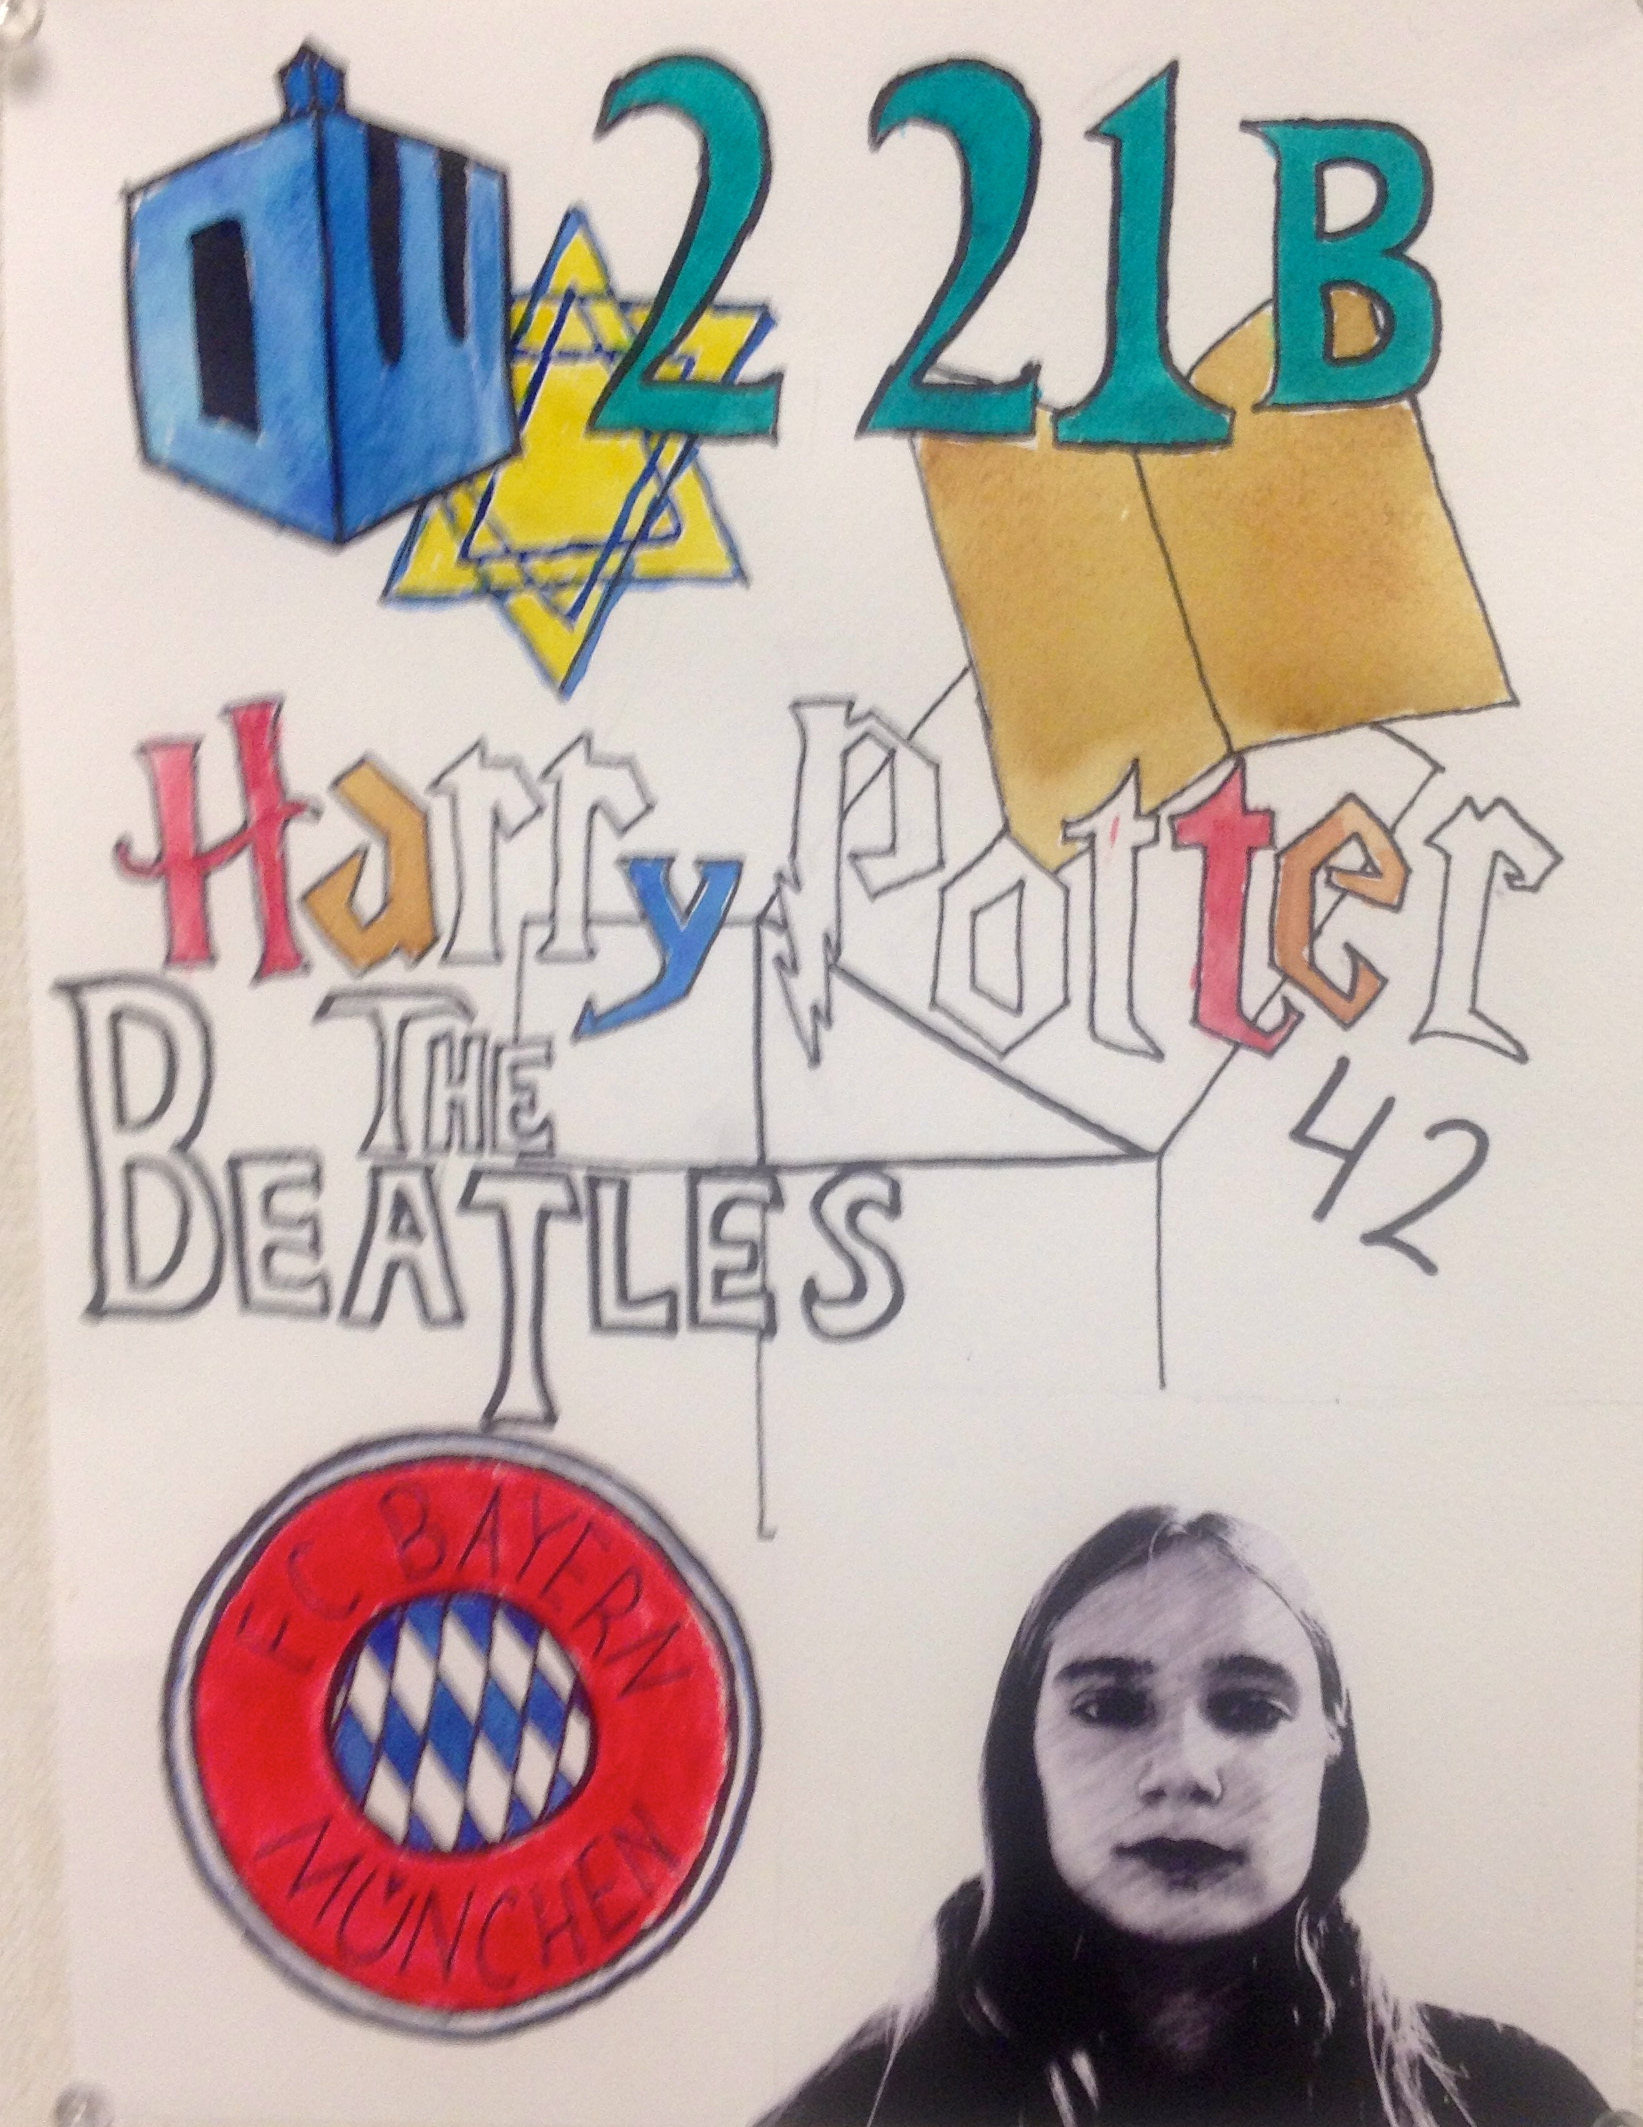 ש
221B
Harry Potter
THE
BEATLES
42
FC BAYERN
MÜNCHEN